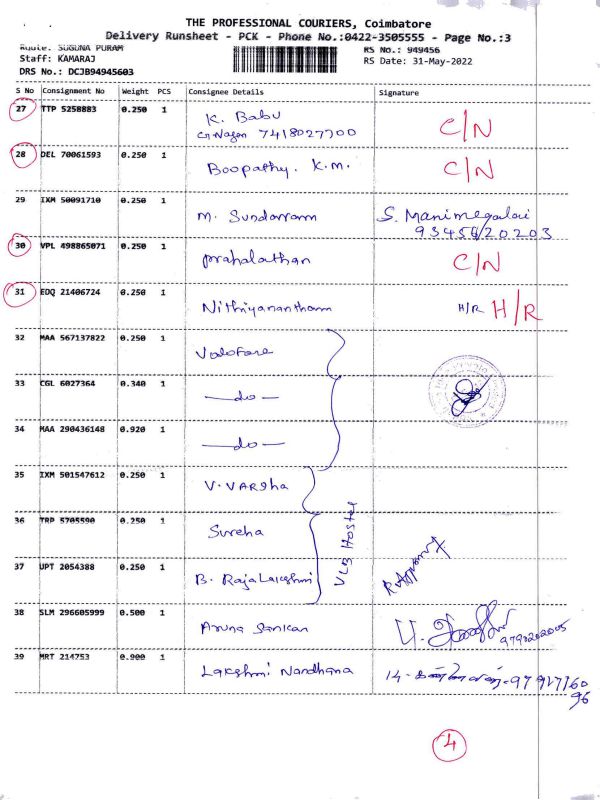 THE PROFESSIONAL COURIERS, Coimbatore
Delivery Runsheet - PCK - Phone No.:0422-3505555 - Page No.:3
Route: SUGUNA PURAM
Staff: KAMARAJ
DRS No.: DCJB94945603
RS No.: 949456
RS Date: 31-May-2022
S No Consignment No Weight PCS Consignee Details Signature
27 TTP 5258883 0.250 1 K. Babu C/N
7418027700
28 DEL 70061593 0.250 1 Boopathy. K.M. C/N
29 IXM 50091710 0.250 1 M. Sundarram S. Manimegalai
30 VPL 498865071 0.250 1 Prahalathan C/N
31 EDQ 21406724 0.250 1 Nithiyanantham H/R H/R
32 MAA 567137822 0.250 1
33 CGL 6027364 0.340 1 —do—
34 MAA 290436148 0.920 1 —do—
35 IXM 501547612 0.250 1 V. VARSha
VLB Hostel
36 TRP 5705590 0.250 1 Sureha
37 UPT 2054388 0.250 1 B. RajaLakshmi
38 SLM 296605999 0.500 1 Aruna Sankar
39 MRT 214753 0.900 1 Lakshmi Nandhana
4